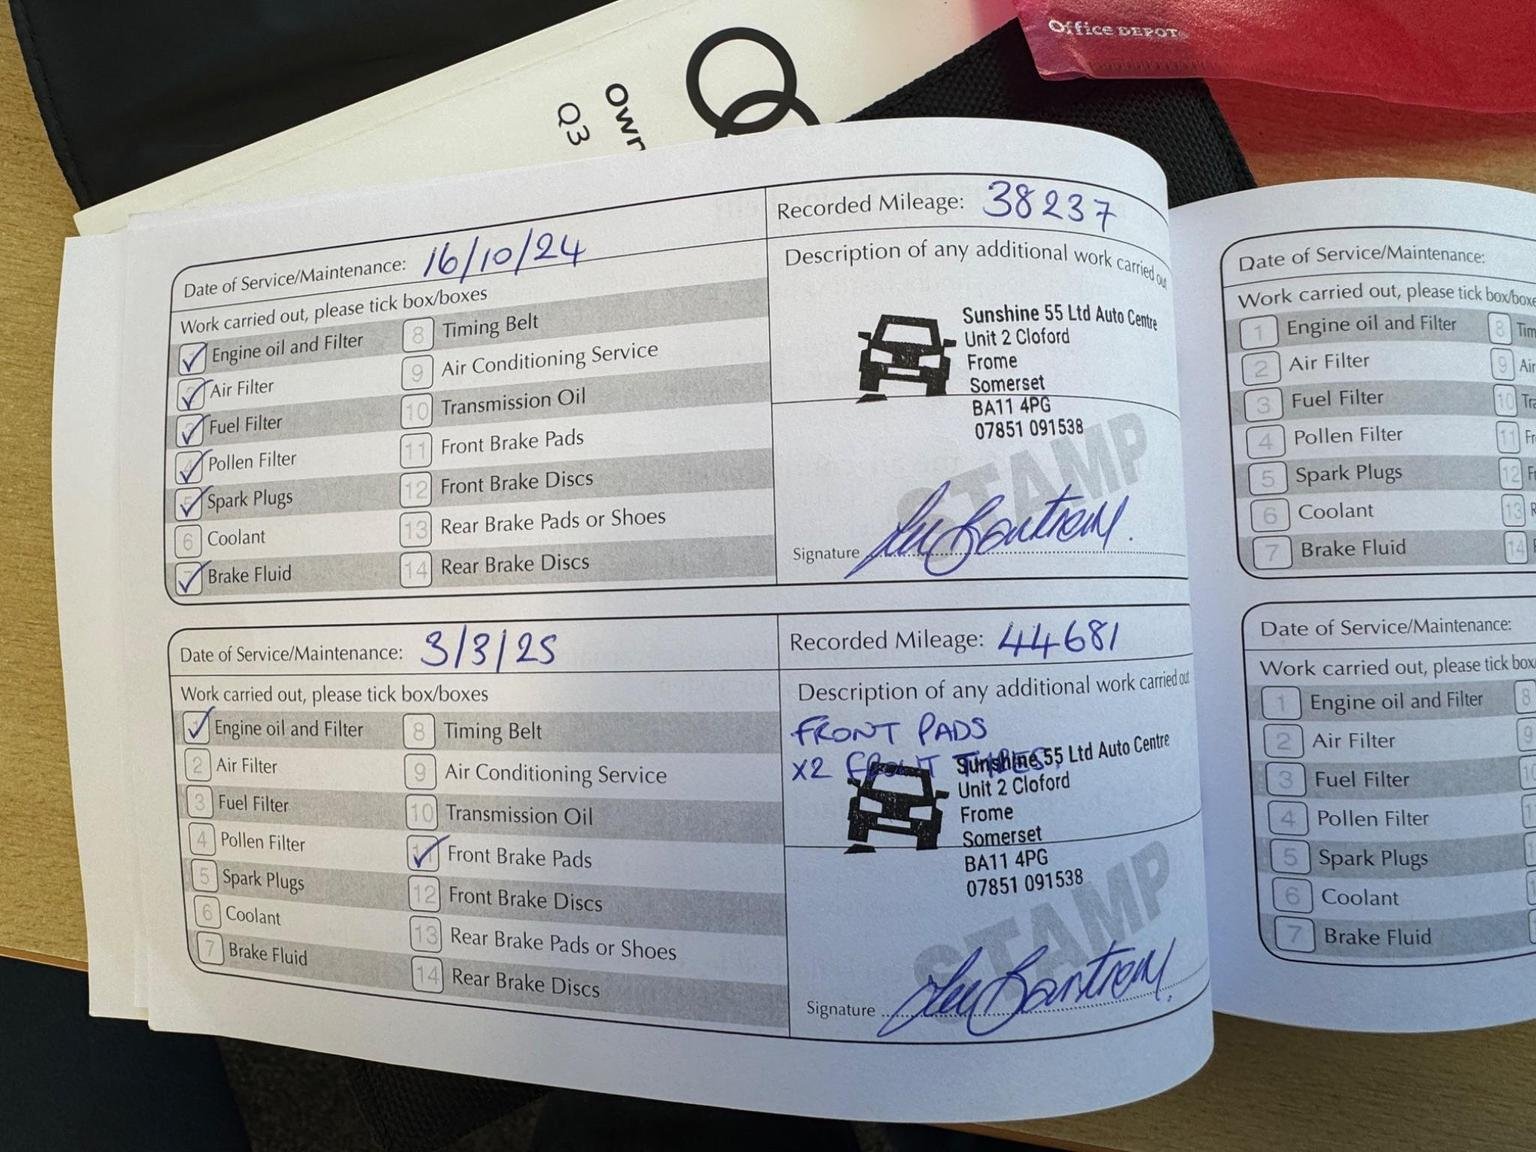 Office DEPOT
Own
Q3
Date of Service/Maintenance: 16/10/24
Recorded Mileage: 38237
Work carried out, please tick box/boxes
Description of any additional work carried out
Engine oil and Filter
8 Timing Belt
Air Filter
9 Air Conditioning Service
Fuel Filter
10 Transmission Oil
4 Pollen Filter
11 Front Brake Pads
5 Spark Plugs
12 Front Brake Discs
6 Coolant
13 Rear Brake Pads or Shoes
7 Brake Fluid
14 Rear Brake Discs
Sunshine 55 Ltd Auto Centre
Unit 2 Cloford
Frome
Somerset
BA11 4PG
07851 091538
STAMP
Signature
Date of Service/Maintenance: 3/3/25
Recorded Mileage: 44681
Work carried out, please tick box/boxes
Description of any additional work carried out
1 Engine oil and Filter
8 Timing Belt
2 Air Filter
9 Air Conditioning Service
3 Fuel Filter
10 Transmission Oil
4 Pollen Filter
11 Front Brake Pads
5 Spark Plugs
12 Front Brake Discs
6 Coolant
13 Rear Brake Pads or Shoes
7 Brake Fluid
14 Rear Brake Discs
FRONT PADS
X2 FRONT TYRES.
Sunshine 55 Ltd Auto Centre
Unit 2 Cloford
Frome
Somerset
BA11 4PG
07851 091538
STAMP
Signature
Date of Service/Maintenance:
Work carried out, please tick box/boxe
1 Engine oil and Filter
8 Tim
2 Air Filter
9 Air
3 Fuel Filter
10 Tra
4 Pollen Filter
11 Fr
5 Spark Plugs
12 F
6 Coolant
13 R
7 Brake Fluid
14
Date of Service/Maintenance:
Work carried out, please tick box
1 Engine oil and Filter
8
2 Air Filter
9
3 Fuel Filter
4 Pollen Filter
5 Spark Plugs
6 Coolant
7 Brake Fluid